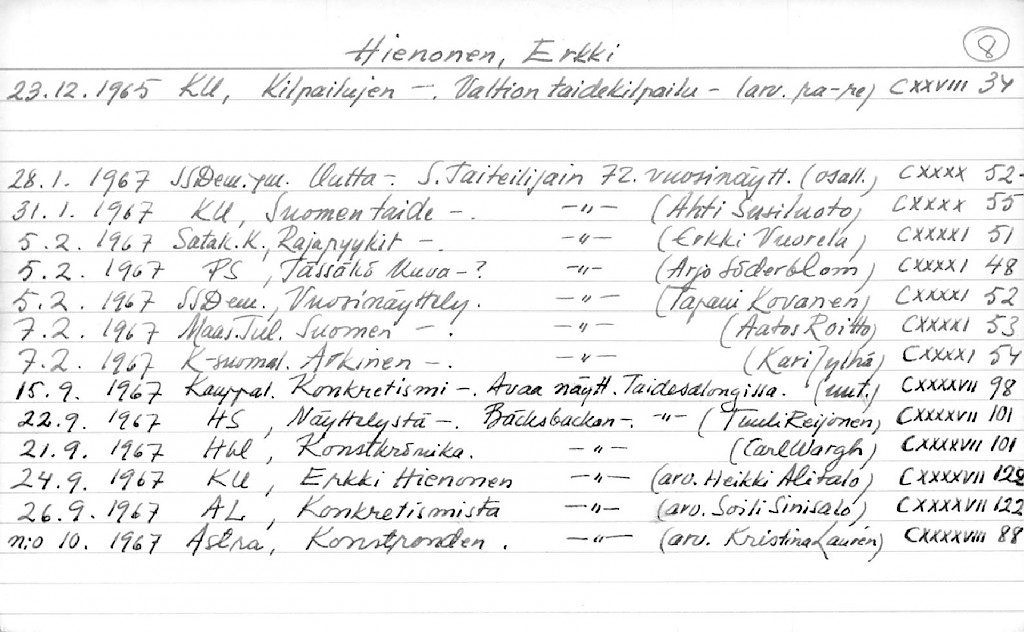 Hienonen, Erkki 8
23.12.1965 KU, Kilpailujen -. Valtion taidekilpailu - (arv. ra-re) CXXVIII 34
28.1. 1967 SSDem. ym. Uutta -. S. Taiteilijain 72. vuosinäytt. (osall.) CXXXX 52-
31.1. 1967 KU, Suomen taide -. -"- (Ahti Susiluoto) CXXXX 55
5.2. 1967 Satak.K., Rajapyykit -. -"- (Erkki Vuorela) CXXXXI 51
5.2. 1967 PS, Tässäkö kuva -? -"- (Arjo Söderblom) CXXXXI 48
5.2. 1967 SSDem., Vuosinäyttely. -"- (Tapani Kovanen) CXXXXI 52
7.2. 1967 Maas.Tul. Suomen -. -"- (Aatos Roitto) CXXXXI 53
7.2. 1967 K-suomal. Arkinen -. -"- (Kari Jylhä) CXXXXI 54
15.9. 1967 Kauppal. Konkretismi -. Avaa näytt. Taidesalongissa. (uut.) CXXXXVII 98
22.9. 1967 HS, Näyttelystä -. Bäcksbackan -. -"- (Tuuli Reijonen) CXXXXVII 101
21.9. 1967 Hbl, Konstkrönika. -"- (Carl Wargh) CXXXXVII 101
24.9. 1967 KU, Erkki Hienonen -"- (arv. Heikki Alitalo) CXXXXVII 122
26.9. 1967 AL, Konkretismista -"- (arv. Soili Sinisalo) CXXXXVII 122
n:o 10. 1967 Astra, Konstronden. -"- (arv. Kristina Laurén) CXXXXVIII 88